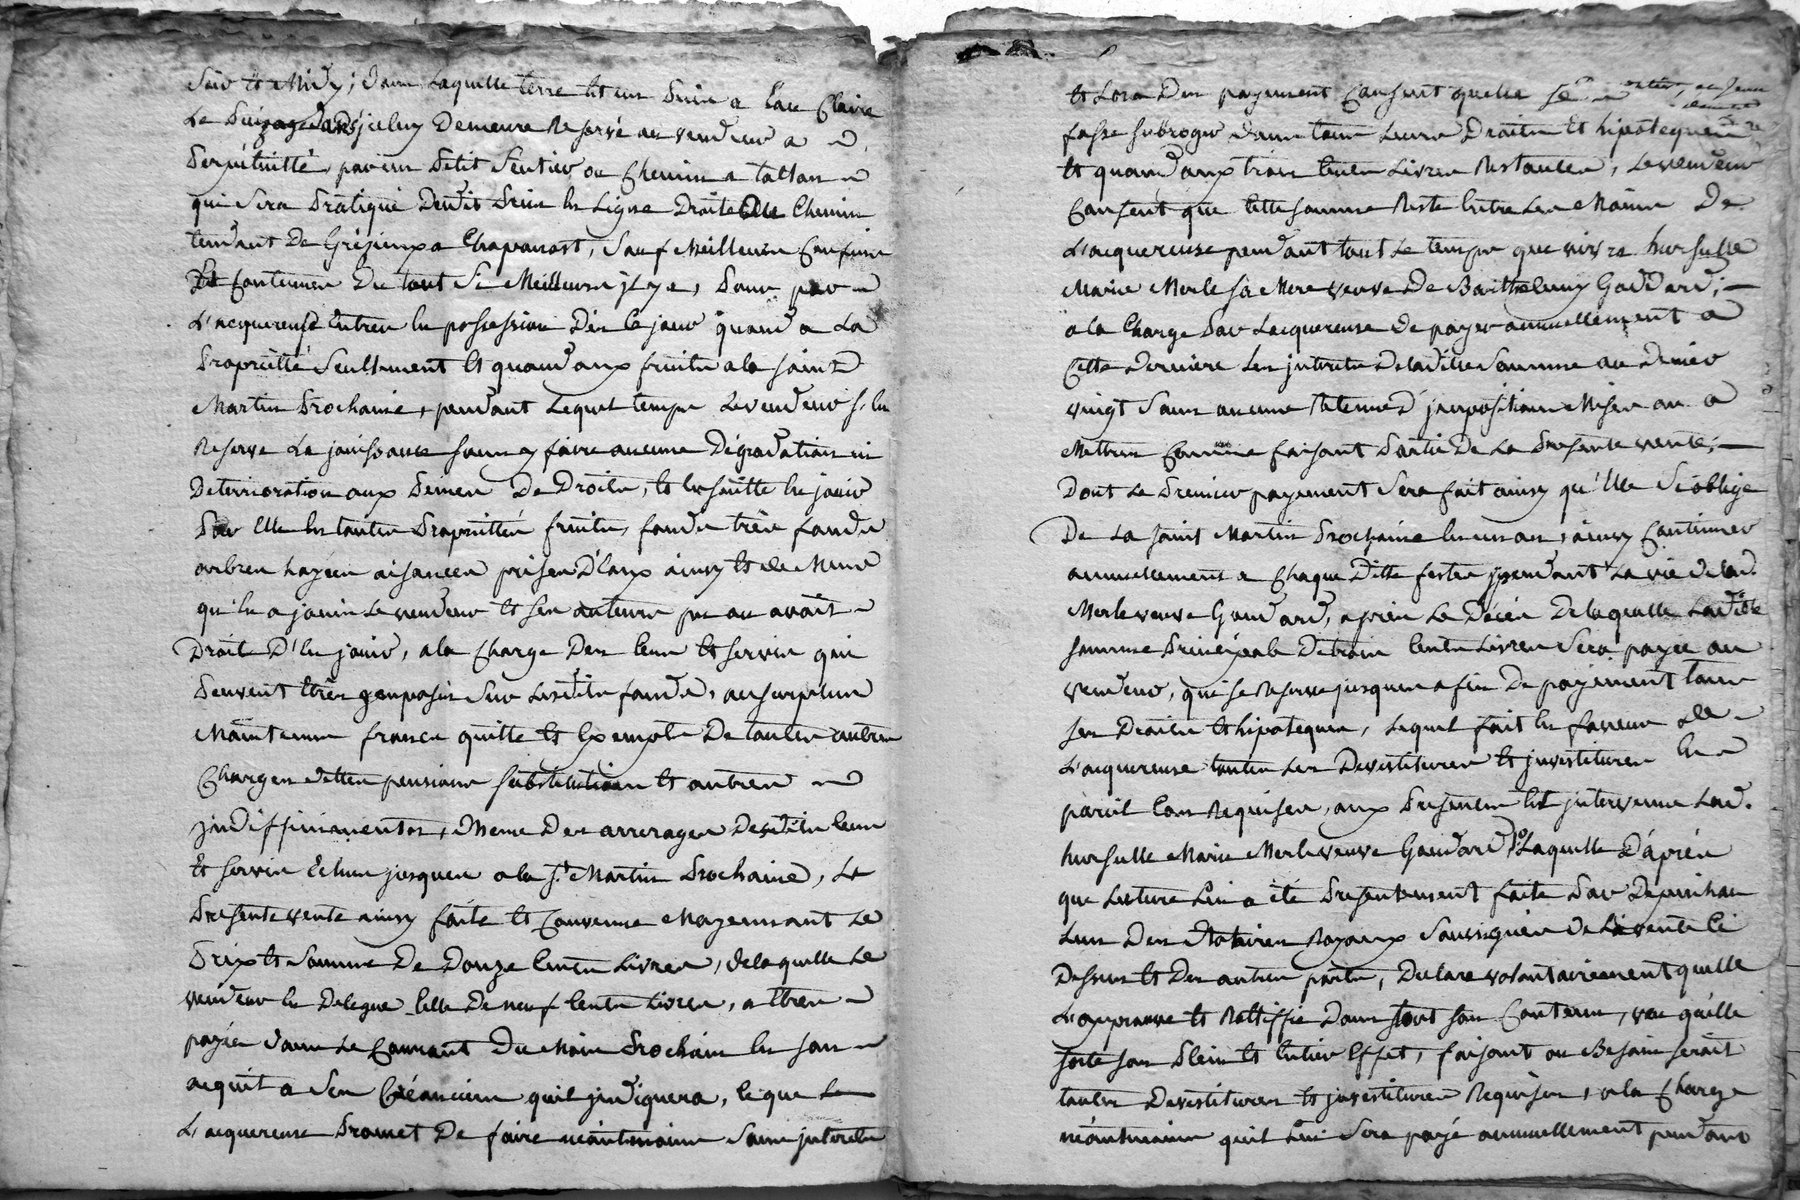 Soir et Midy; dans laquelle terre et en Prise a l'eau Claire
Le Puizage d'iceluy Demeure Reservé au vendeur a
Perpétuitté, par un Petit Sentier ou Chemin a tallon
qui Sera Pratiqué Ligne Droite du Chemin
tendant De Grézieux a Chaponost, Sauf Meilleurs Confins
Et Contenue Du tout Si Meilleurs jl y a, Pour par
L'acquereuse Entrer En possession Dès Ce jour quand a La
Proprietté Seullement Et quand aux fruits a la saint
Martin Prochaine, pendant Lequel temps Le vendeur s'En
Reserve La jouissance sans y faire aucune Dégradation ni
Deterrioration aux Peines De Droits, Et Ensuitte En jouir
Par Elle En toutes Propriettés fruits, fonds très fonds
arbres hayes aisances prises D'Eaux ainsy Et de Même
qu'En a jouis Le vendeur Et ses auteurs pu ou avoit
Droit D'En jouir, a la Charge Des Cens Et servis qui
Peuvent Etres jmposés Sur Lesdits fonds, au surplus
Maintenus francs quitte Et Exempts De toutes autres
Charges dettes pensions substitutions Et autres
jndiffiniments, Meme Des arrerages Desdits Cens
Et servis Echus jusques a la St Martin Prochaine, La
Presente vente ainsy faite Et Convenue Moyennant Le
Prix Et Somme De Douze Cents Livres, de laquelle Le
vendeur En Delegue Celle De neuf Cents Livres, a Etres
payés dans Le Courant Du Mois Prochain En son
acquit a Ses Créanciers qu'il jndiquera, Ce que
L'acquereuse Promet De faire neantmoins Sans jnterets
Et Lors Des payement Consent quelle se
fasse subroger dans tous Leurs Droits Et hipoteques
Et quand aux trois Cents Livres Restantes, Le vendeur
Consent que Cette somme Reste Entre Les Mains De
L'acquereuse pendant tout Le temps que vivra hursulle
Marie Merle sa Mere veuve De Barthelemy Goddard;
a la Charge Par Lacquereuse de payer annuellement a
Cette Derniere Les jnterets De ladite Somme au Denier
vingt Sans aucune Retenue d'jmposition Mises ou a
Mettres Comme faisant Partie De La Presente vente;
Dont Le Premier payement Sera fait ainsy qu'Elle S'oblige
De La saint Martin Prochaine En un an, ainsy Continuer
annuellement a Chaque Ditte festes pendant La vie de lad.
Merle veuve Goddard, après Le Décès De laquelle Laditte
somme Principale De trois Cents Livres Sera payée au
vendeur, qui se Reserve jusques a fin De payement tous
ses Droits Et hipoteques, Lequel fait En faveur de
L'acquereuse toutes Les Devestitures Et jnvestitures En
pareil Cas Requises, aux Presentes Est jntervenue Lad.
hursulle Marie Merle veuve Goddard, Laquelle D'après
que Lecture Lui a été Presentement faite Par
L'un Des Notaires Royaux Soussignés de la vente Ci
Dessus Et Des autres parts, Declare volontairement quelle
L'approuve Et Rattiffie Dans tout son Contenu, veu qu'elle
sorte son Plein Et Entier Effet, faisant au Besoin serait
toutes Devestitures Et jnvestitures Requises, a la Charge
néantmoins quil Lui Sera payé annuellement pendant